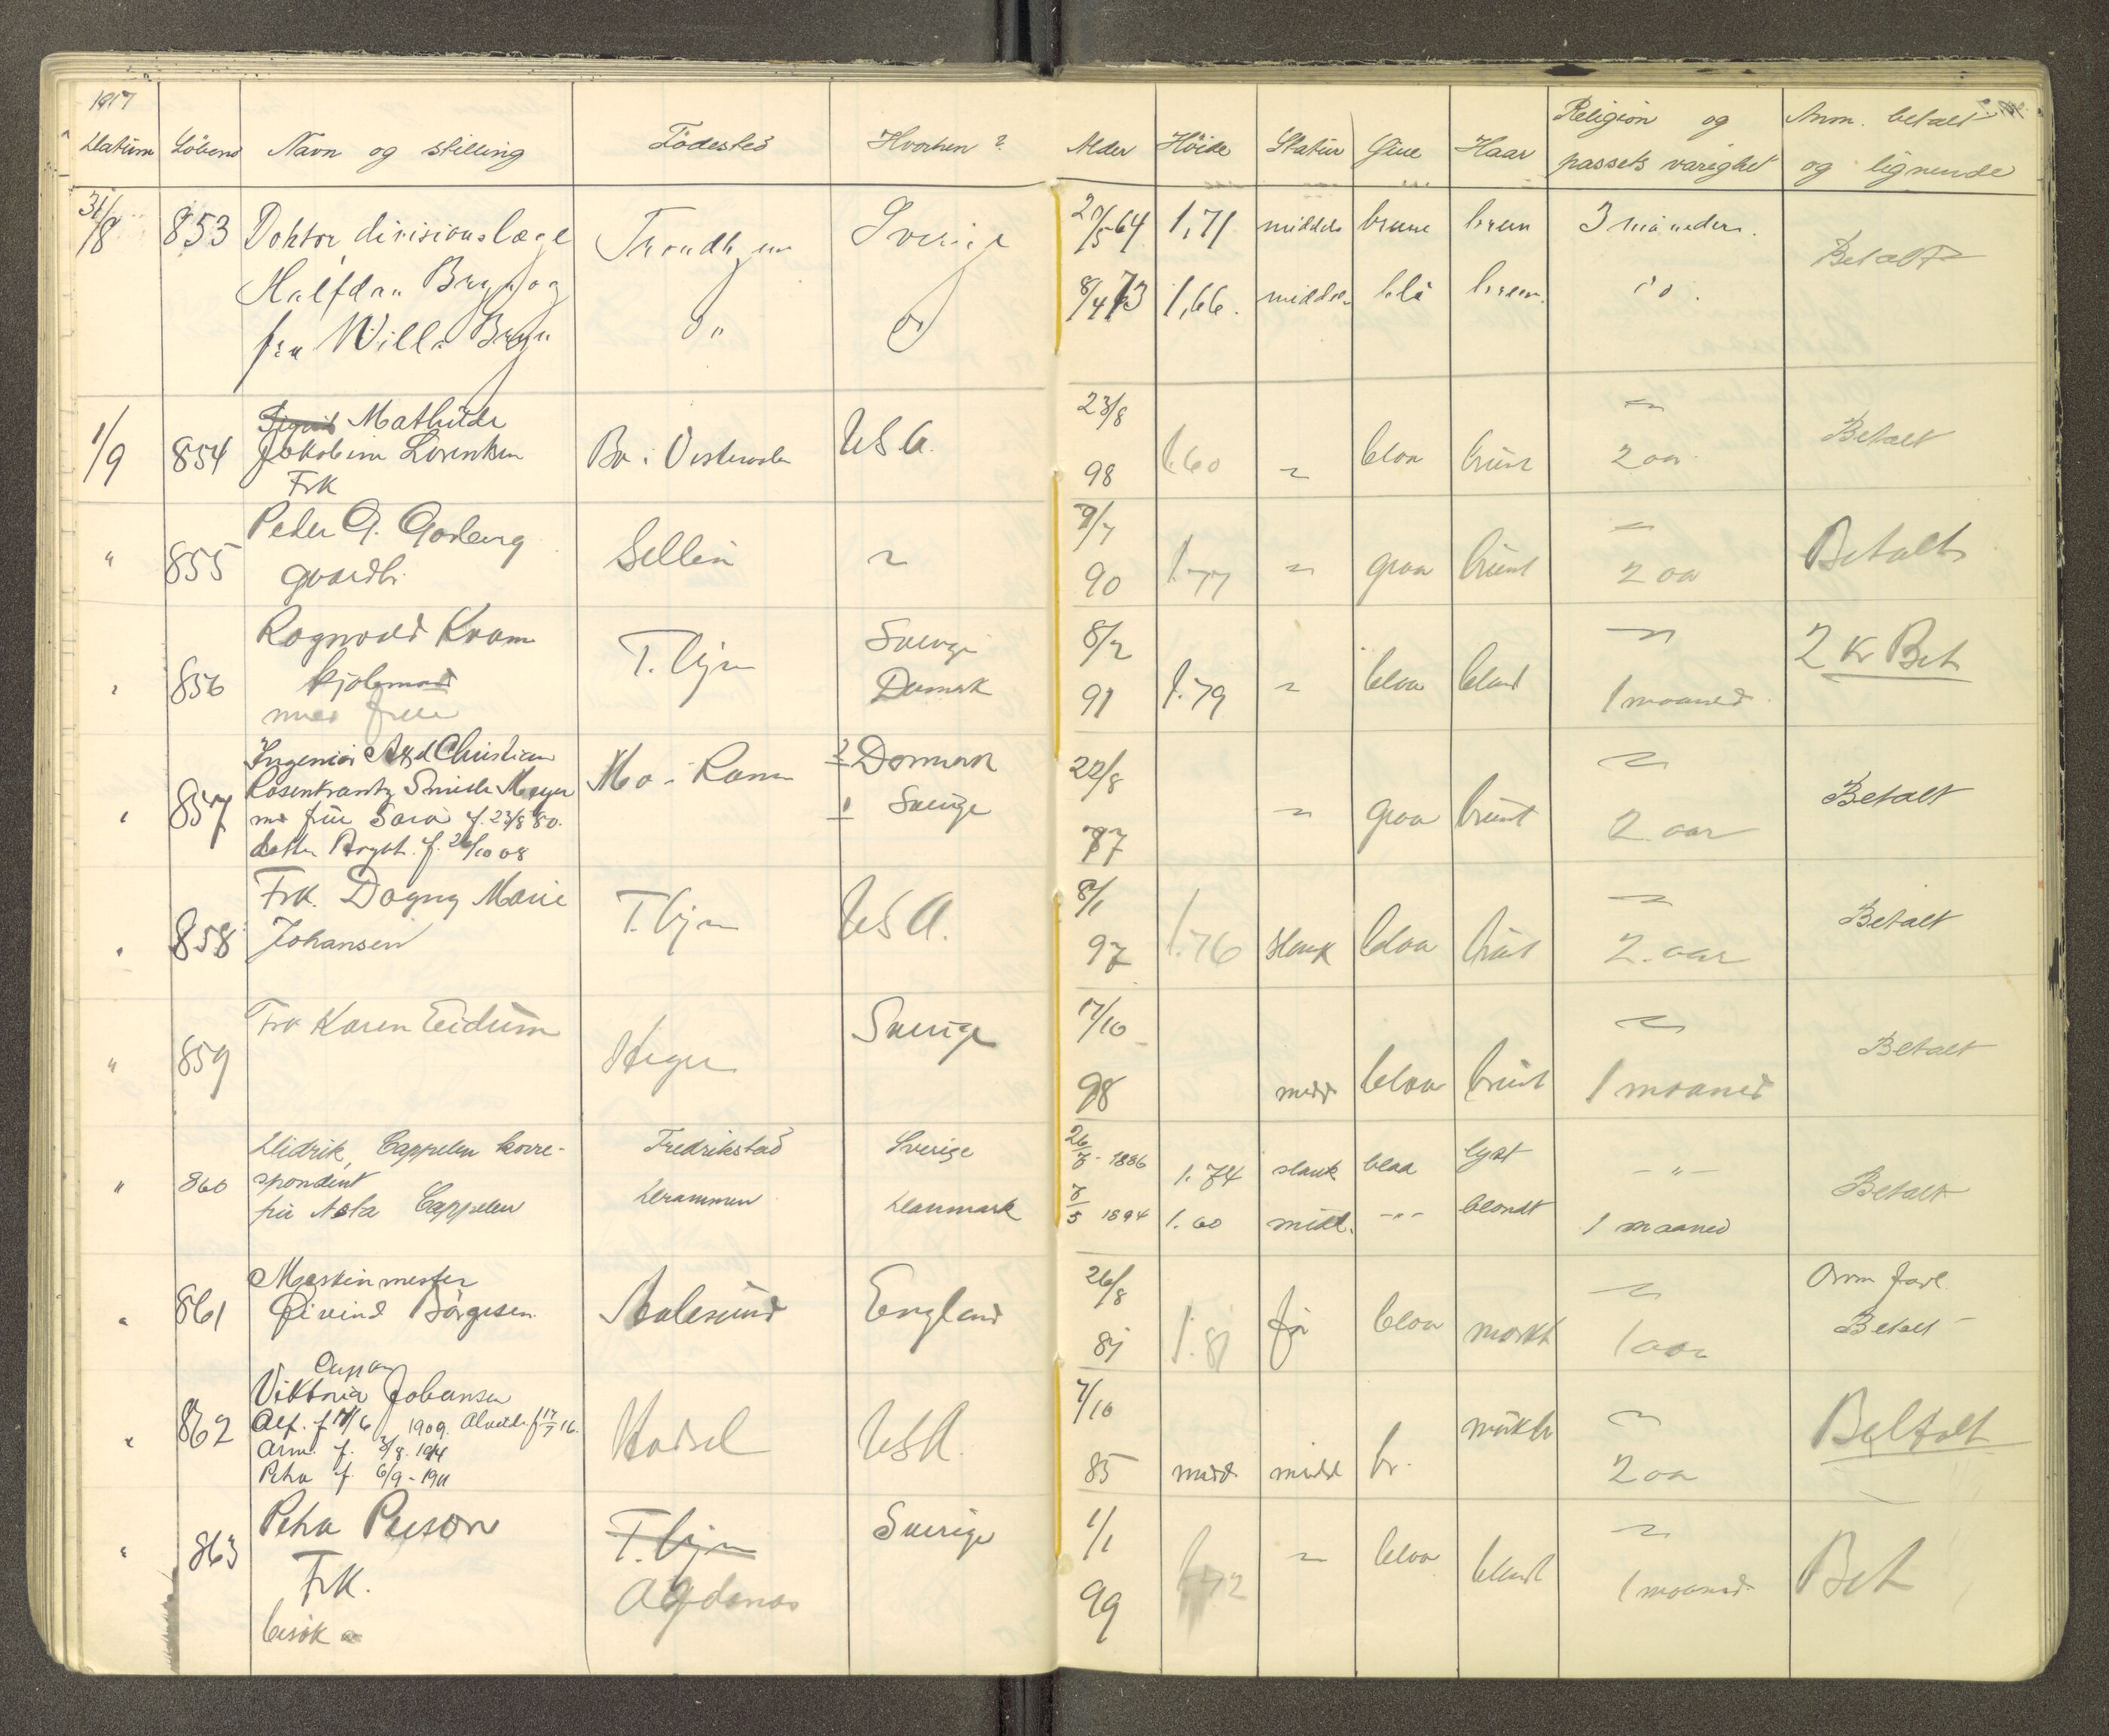 1917
Datum Löbenr Navn og stilling Födested Hvorhen? Alder Höide Statur Öine Haar Religion og passets varighet Anm. betalt og lignende
31/8 853 Doktor, divisionslæge Trondhjem Sverige 20/5 64 1,71 middels brune brun 3 måneder. Betalt
Halfdan Bryn og 8/4 73 1,66. middels blå brun. do.
fru Willa Bryn do do
1/9 854 Mathilde USA. 23/8 Betalt
Jakobine Lorentsen Bø i Vesteraalen 98 1.60 " blaa brunt 2 aar
Frk
" 855 Peder A. Aasberg Selbu " 9/7 " Betalt
gaardbr. 90 1.77 " graa brunt 2 aa
" 856 Ragnvald Kvam T.hjem Sverige 8/2 " 2 Kr Bet
kjøbmand Danmark 91 1.79 " blaa blond 1 maaned
med frue
" 857 Ingeniør Axel Christian Mo i Ranen 2 Danmark 22/8 " Betalt
Rosenkrantz Smith Meyer 1 Sverige " graa brunt 2 aar
me frue Sara f. 23/8 80. 87
datter f. 26/10 08
" 858 Frk. Dagny Marie T.hjem USA. 8/1 " Betalt
Johansen 97 1.76 slank blaa brunt 2. aar
" 859 Frk Karen Eidum Hegra Sverige 17/10 " Betalt
98 midd blaa brunt 1 maaned
" 860 Didrik Cappelen korre- Fredrikstad Sverige 26/8 - 1886 1.74 slank blaa lyst - " - Betalt
spondent
frü Asta Cappelen Drammen Danmark 8/5 1894 1.60 midd. -"- blondt 1 maaned
" 861 Maskinmester Aalesund England 26/8 " Anm favl.
Øivind Börgesen 89 1.81 før blaa mørkt 1 aar Betalt
" 862 Viktoria Johansen Hadsel USA. 7/10 mörkt " Betalt
Alf. f. 17/6 1909. f 17/7 16. 85 midd midd br. 2 aa
Arm. f. 3/8. 1914
Petra f. 6/9 - 1911
" 863 Petra Person T.hjem Sverige 1/1 " blaa blond " Bet
Frk. Agdenes 99 1.72 1 maaned
besök